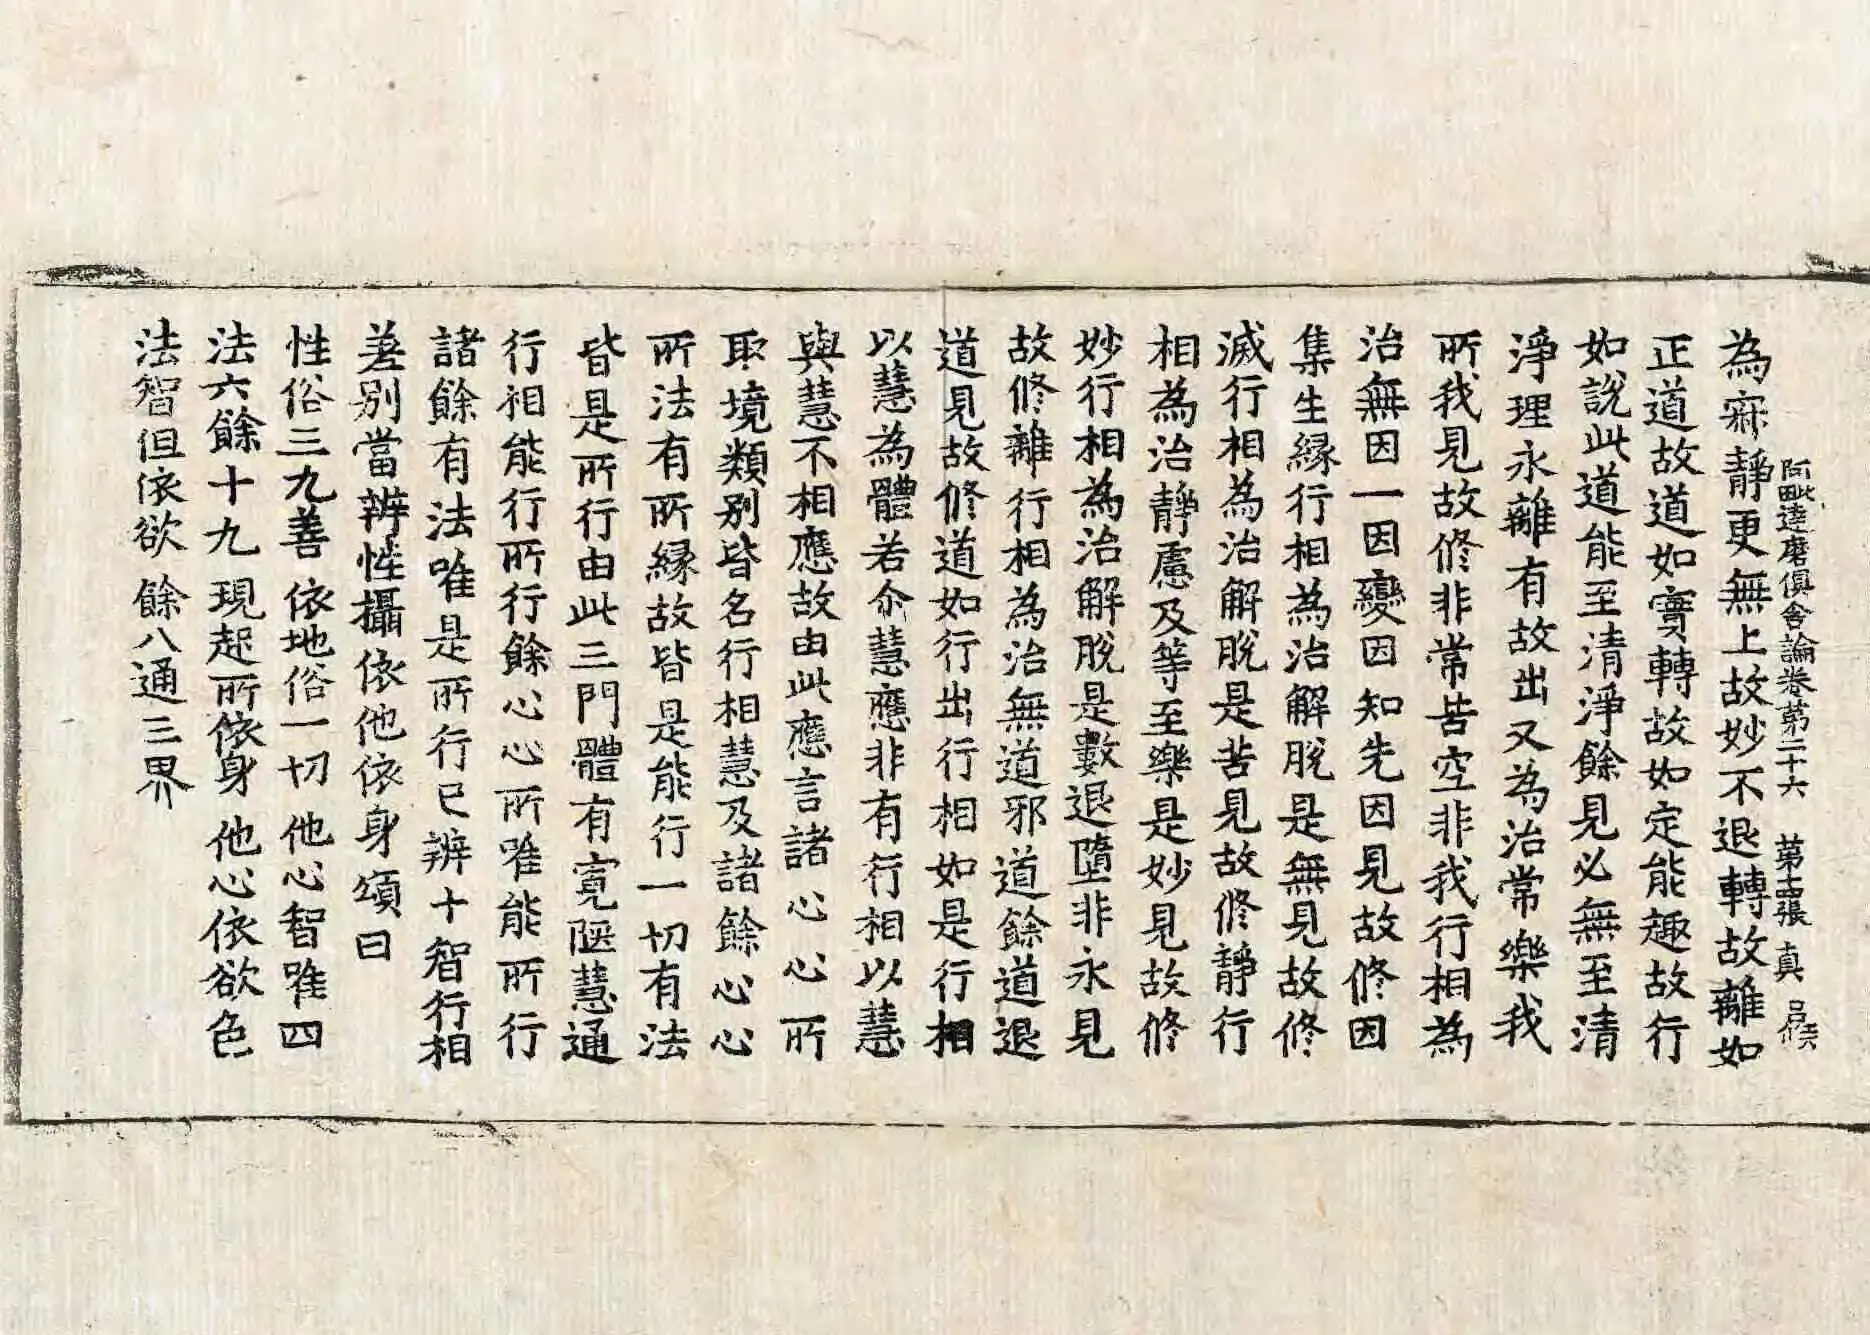 阿毗達磨俱舍論卷第二十六 第十五張 真
為寂靜更無上故妙不退轉故離如
正道故道如實轉故如定能趣故行
如說此道能至清淨餘見必無至清
淨理永離有故出又為治常樂我
所我見故修非常苦空非我行相為
治無因一因變因知先因見故修因
集生緣行相為治解脫是無見故修
滅行相為治解脫是苦見故修靜行
相為治靜慮及等至樂是妙見故修
妙行相為治解脫是數退墮非永見
故修離行相為治無道邪道餘道退
道見故修道如行出行相如是行相
以慧為體若尒慧應非有行相以慧
與慧不相應故由此應言諸心心所
取境類別皆名行相慧及諸餘心心
所法有所緣故皆是能行一切有法
皆是所行由此三門體有寬陿慧通
行相能行所行餘心心所唯能所行
諸餘有法唯是所行已辨十智行相
差別當辨性攝依地依身頌曰
性俗三九善 依地俗一切 他心智唯四
法六餘十九 現起所依身 他心依欲色
法智但依欲 餘八通三界